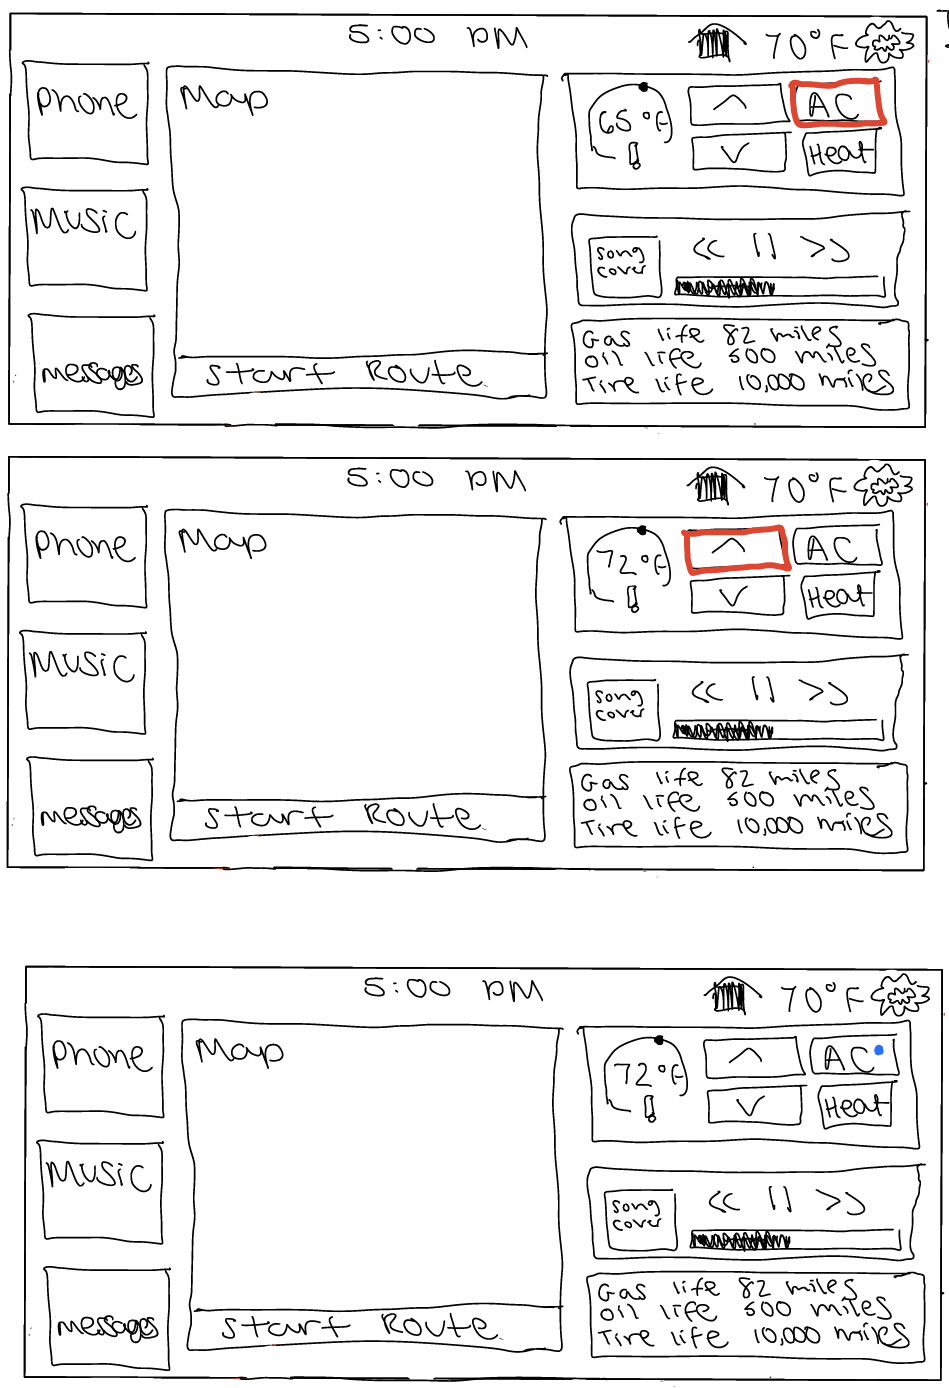 5:00 PM
70°F
Phone
Music
messages
Map
Start Route
65°F
^
V
AC
Heat
song
cover
<< || >>
Gas life 82 miles
oil life 500 miles
Tire life 10,000 miles
5:00 PM
70°F
Phone
Music
messages
Map
Start Route
72°F
^
V
AC
Heat
song
cover
<< || >>
Gas life 82 miles
oil life 500 miles
Tire life 10,000 miles
5:00 PM
70°F
Phone
Music
messages
Map
Start Route
72°F
^
V
AC
Heat
song
cover
<< || >>
Gas life 82 miles
oil life 500 miles
Tire life 10,000 miles